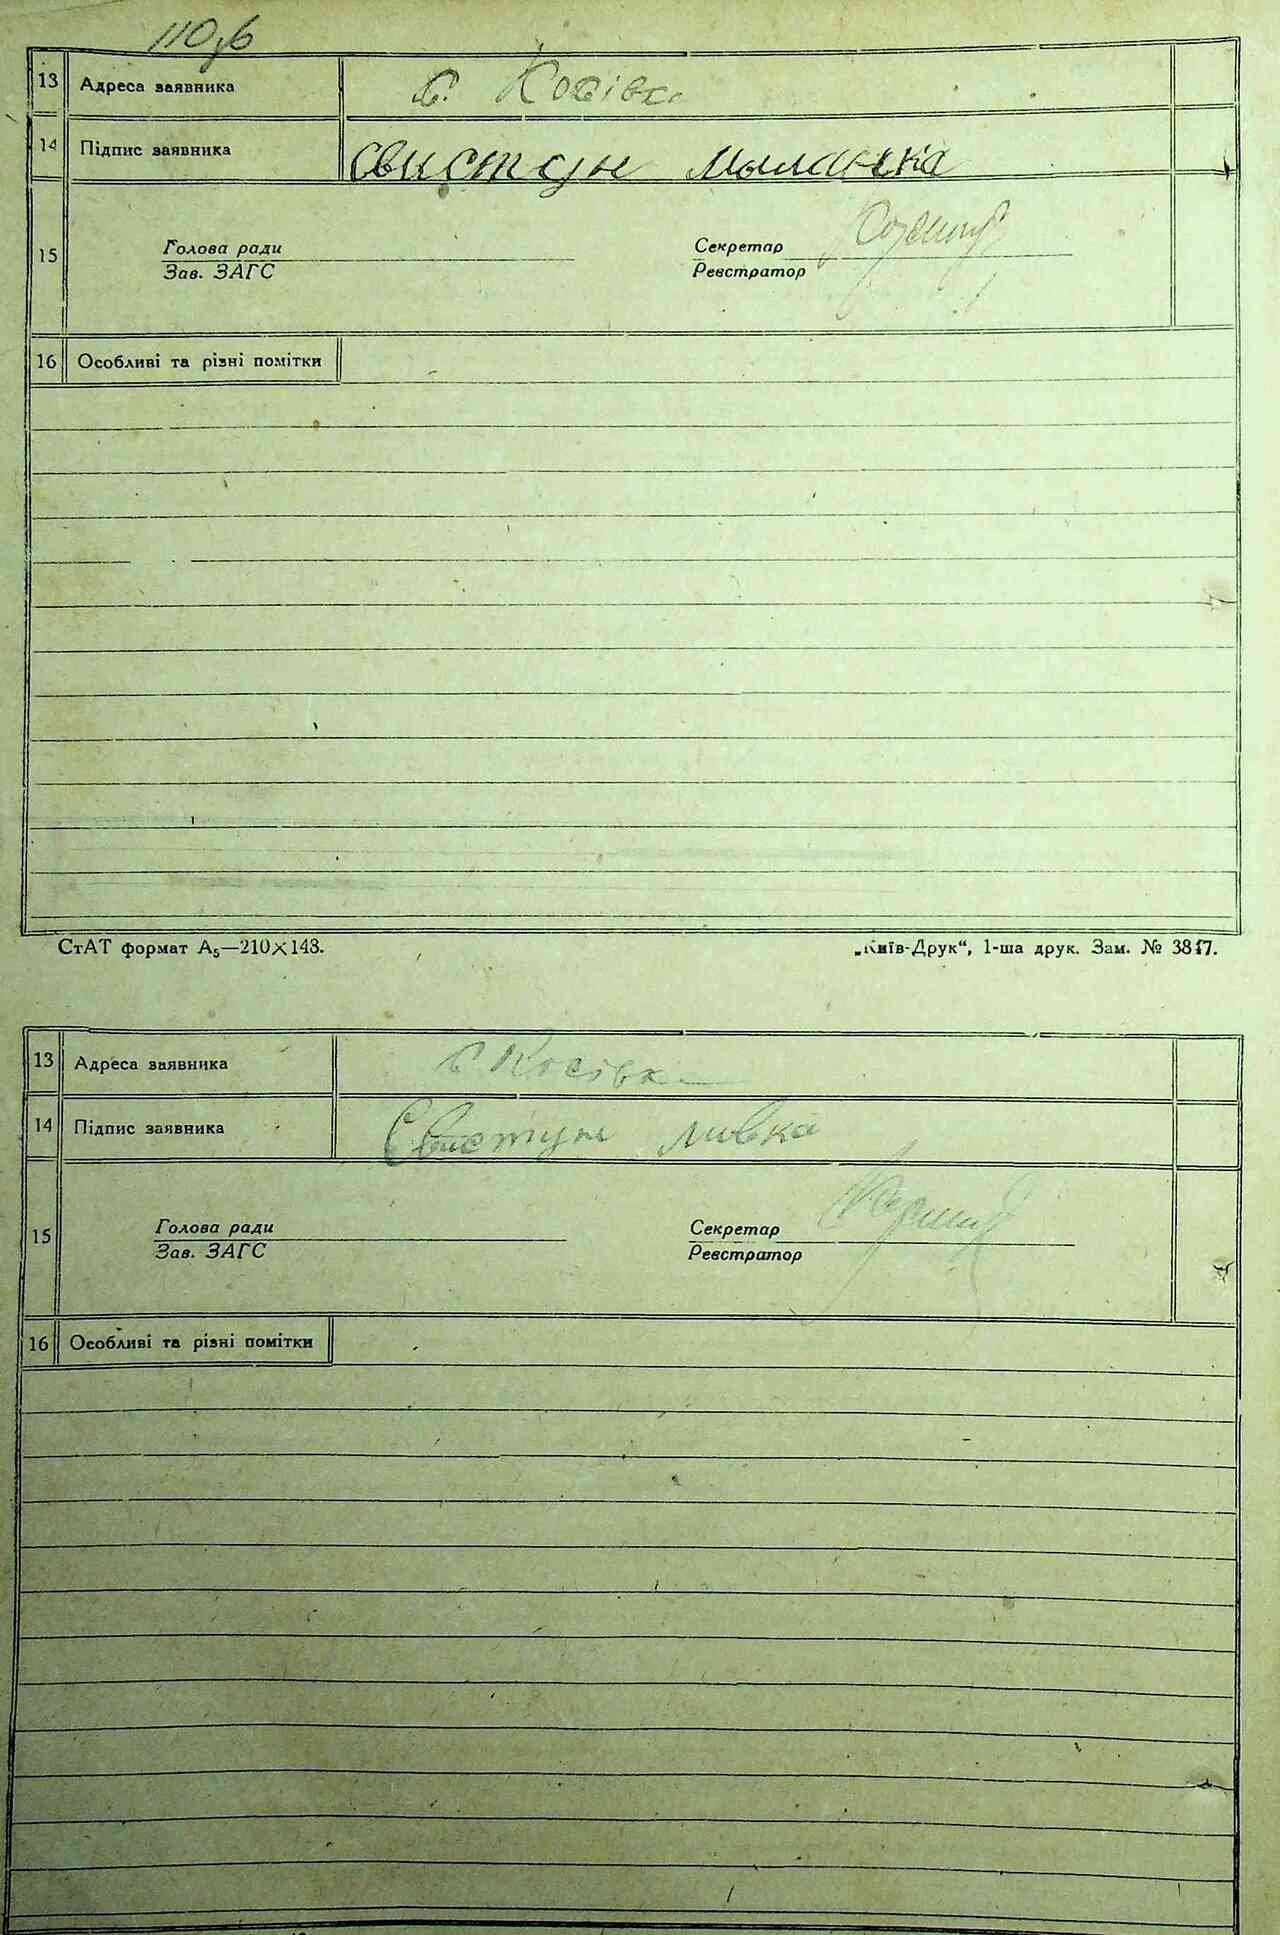 110зв
13 Адреса заявника с. Косівка
14 Підпис заявника Свистун Мыланка
15 Голова ради Секретар
Зав. ЗАГС Реєстратор
16 Особливі та різні помітки
СтАТ формат А₅—210×148. „Київ-Друк“, 1-ша друк. Зам. № 3847.
13 Адреса заявника с. Косівка
14 Підпис заявника Свистун Мивка
15 Голова ради Секретар
Зав. ЗАГС Реєстратор
16 Особливі та різні помітки